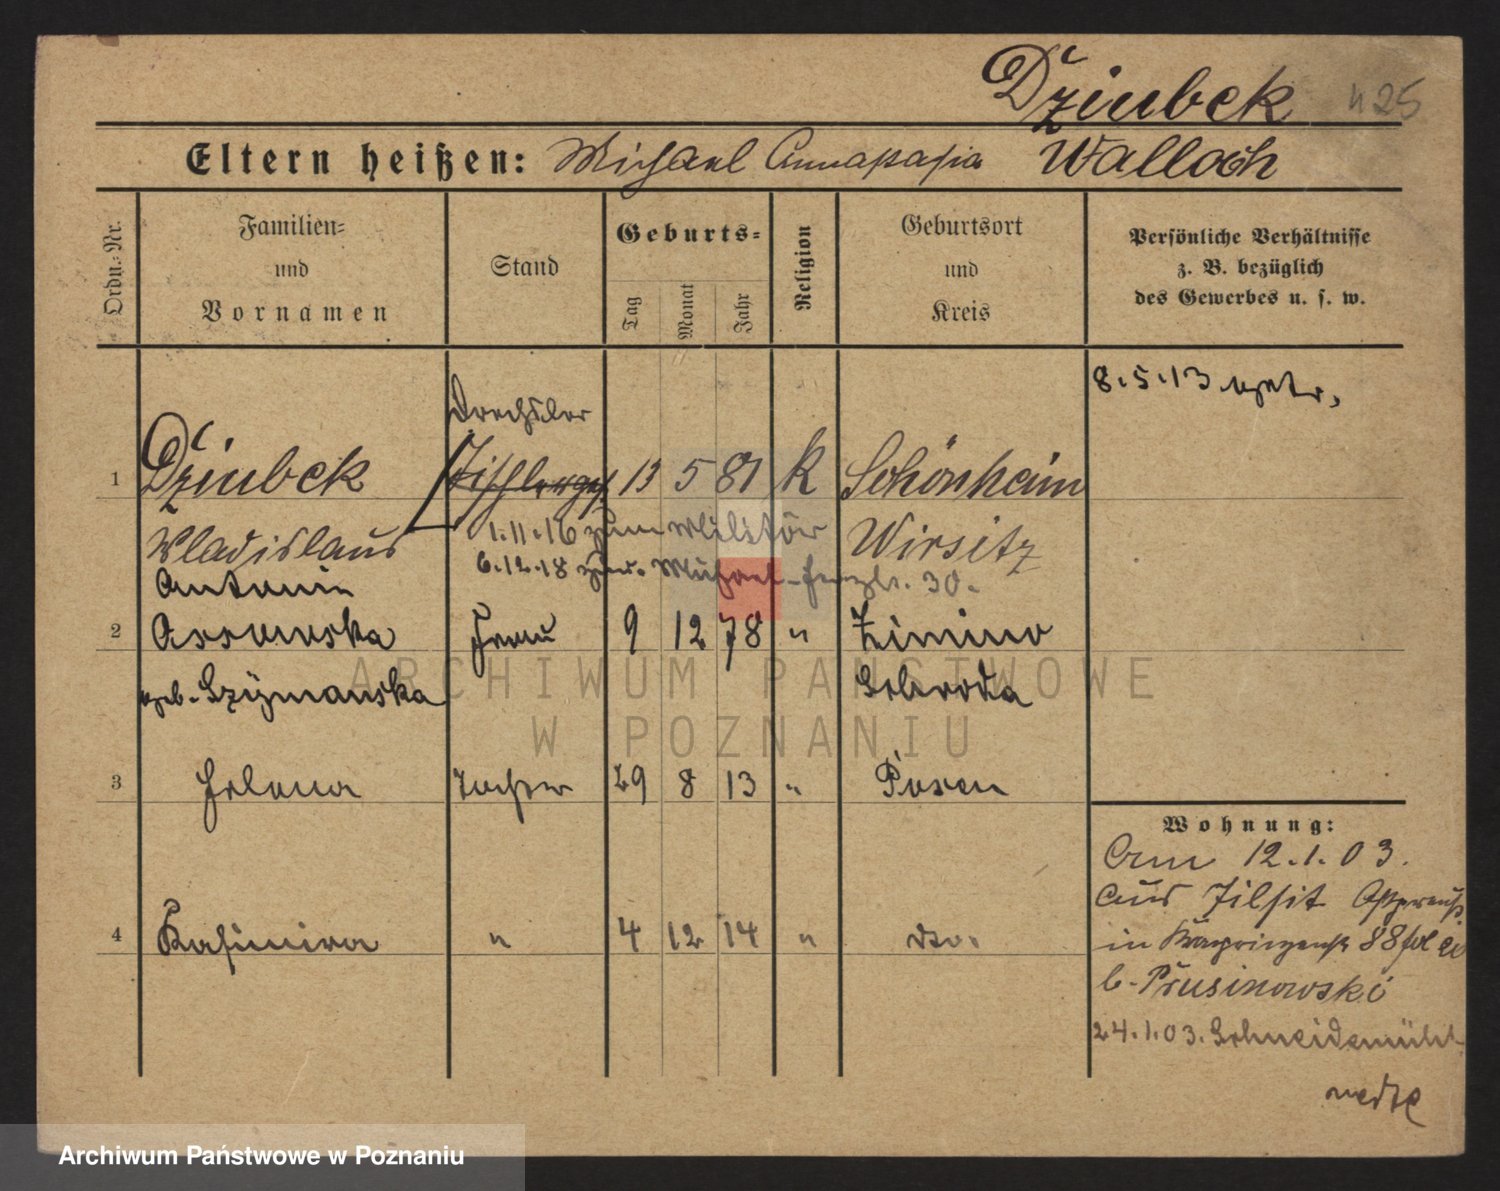 Dziubek 425
Eltern heißen: Michael Annastasia Walloch
Ordn.-Nr.
Familien-
und
Vornamen
Stand
Geburts-
Tag
Monat
Jahr
Religion
Geburtsort
und
Kreis
Persönliche Verhältnisse
z. B. bezüglich
des Gewerbes u. s. w.
8.5.13
Drechsler
1 Dziubek Tischlerges 13 5 81 k Schönheim
Wladislaus 1.11.16 zum Militär Wirsitz
6.12.18 30.
Antonie
2 Frau 9 12 78 " Zimino
geb. Szymanska Schroda
ARCHIWUM PAŃSTWOWE
W POZNANIU
3 Helena Tochter 29 8 13 " Posen
Wohnung:
Am 12.1.03.
aus Tilsit Ostpreuß
4 Kasimira " 4 12 14 " dto.
in 88
b. Prusinowski
24.1.03. Schneidemühl
Archiwum Państwowe w Poznaniu